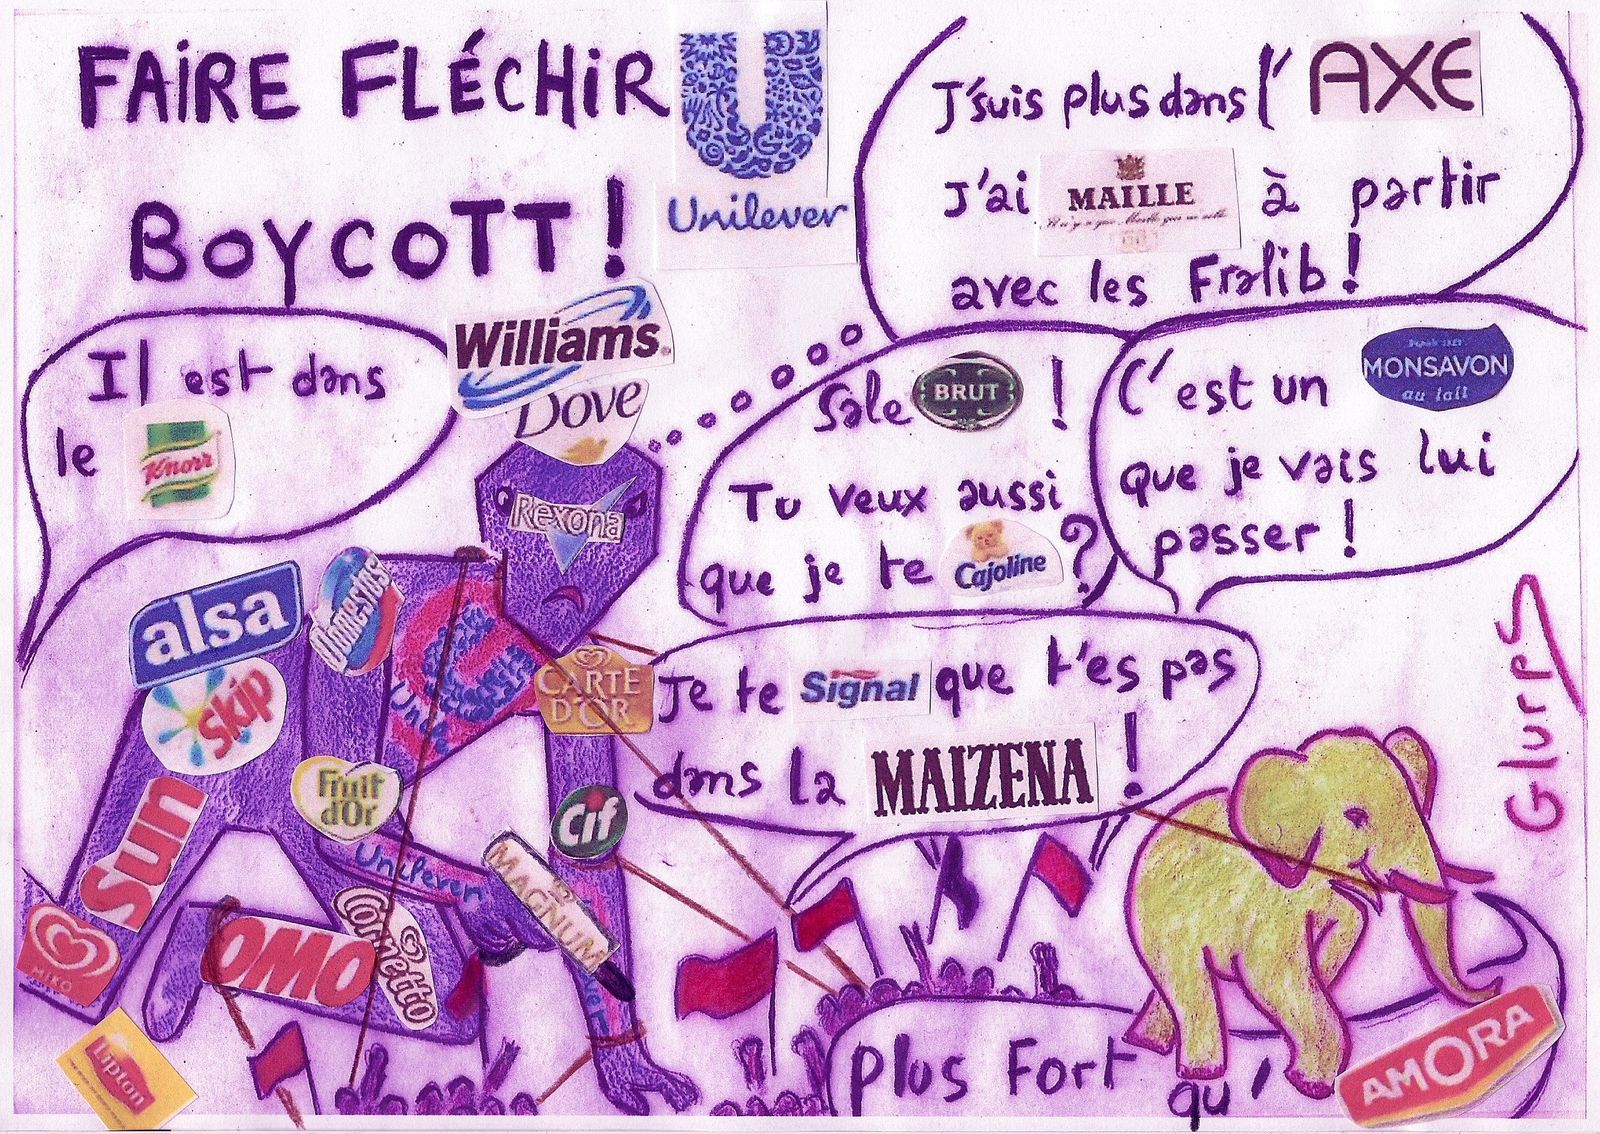 FAIRE FLÉCHIR
Unilever
BOYCOTT !
J'suis plus dans l' AXE
J'ai MAILLE à partir
avec les Fralib !
Il est dans
le Knorr
Williams
Dove
Rexona
Sale BRUT !
Tu veux aussi
que je te Cajoline ?
C'est un MONSAVON
au lait
que je vais lui
passer !
Je te Signal que t'es pas
dans la MAIZENA !
alsa
Domestos
Skip
Unilever
CARTE
D'OR
Fruit
d'Or
Cif
Sun
Unilever
MAGNUM
MIKO
OMO
Cornetto
Lipton
plus Fort qu'
AMORA
Glurps